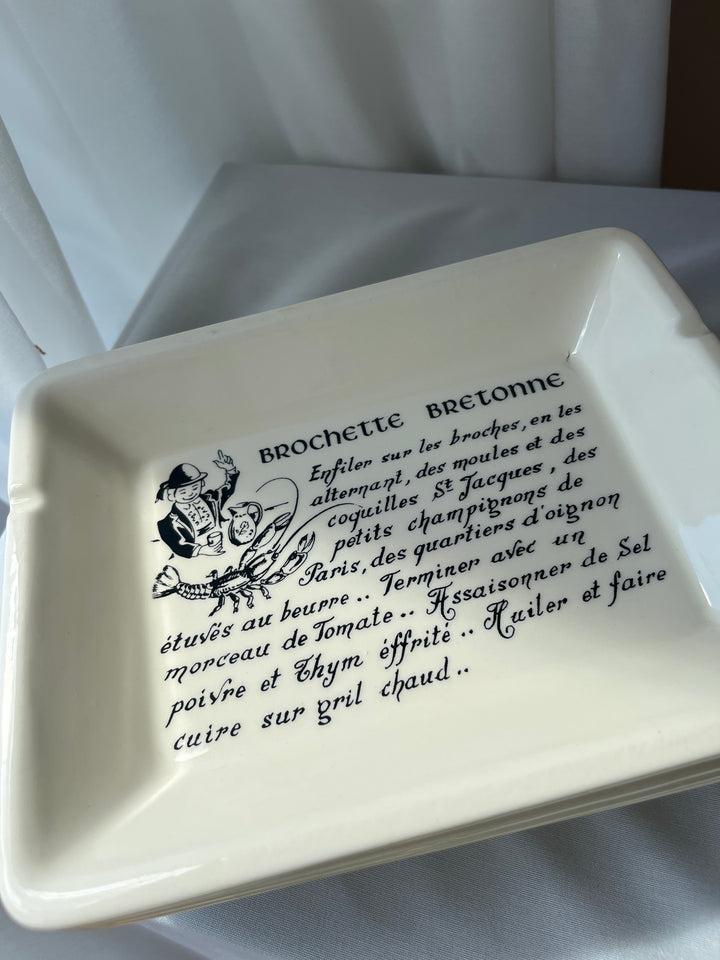 BROCHETTE BRETONNE
Enfiler sur les broches, en les
alternant, des moules et des
coquilles St Jacques, des
petits champignons de
Paris, des quartiers d'oignon
étuvés au beurre.. Terminer avec un
morceau de Tomate.. Assaisonner de Sel
poivre et Thym éffrité.. Huiler et faire
cuire sur gril chaud..